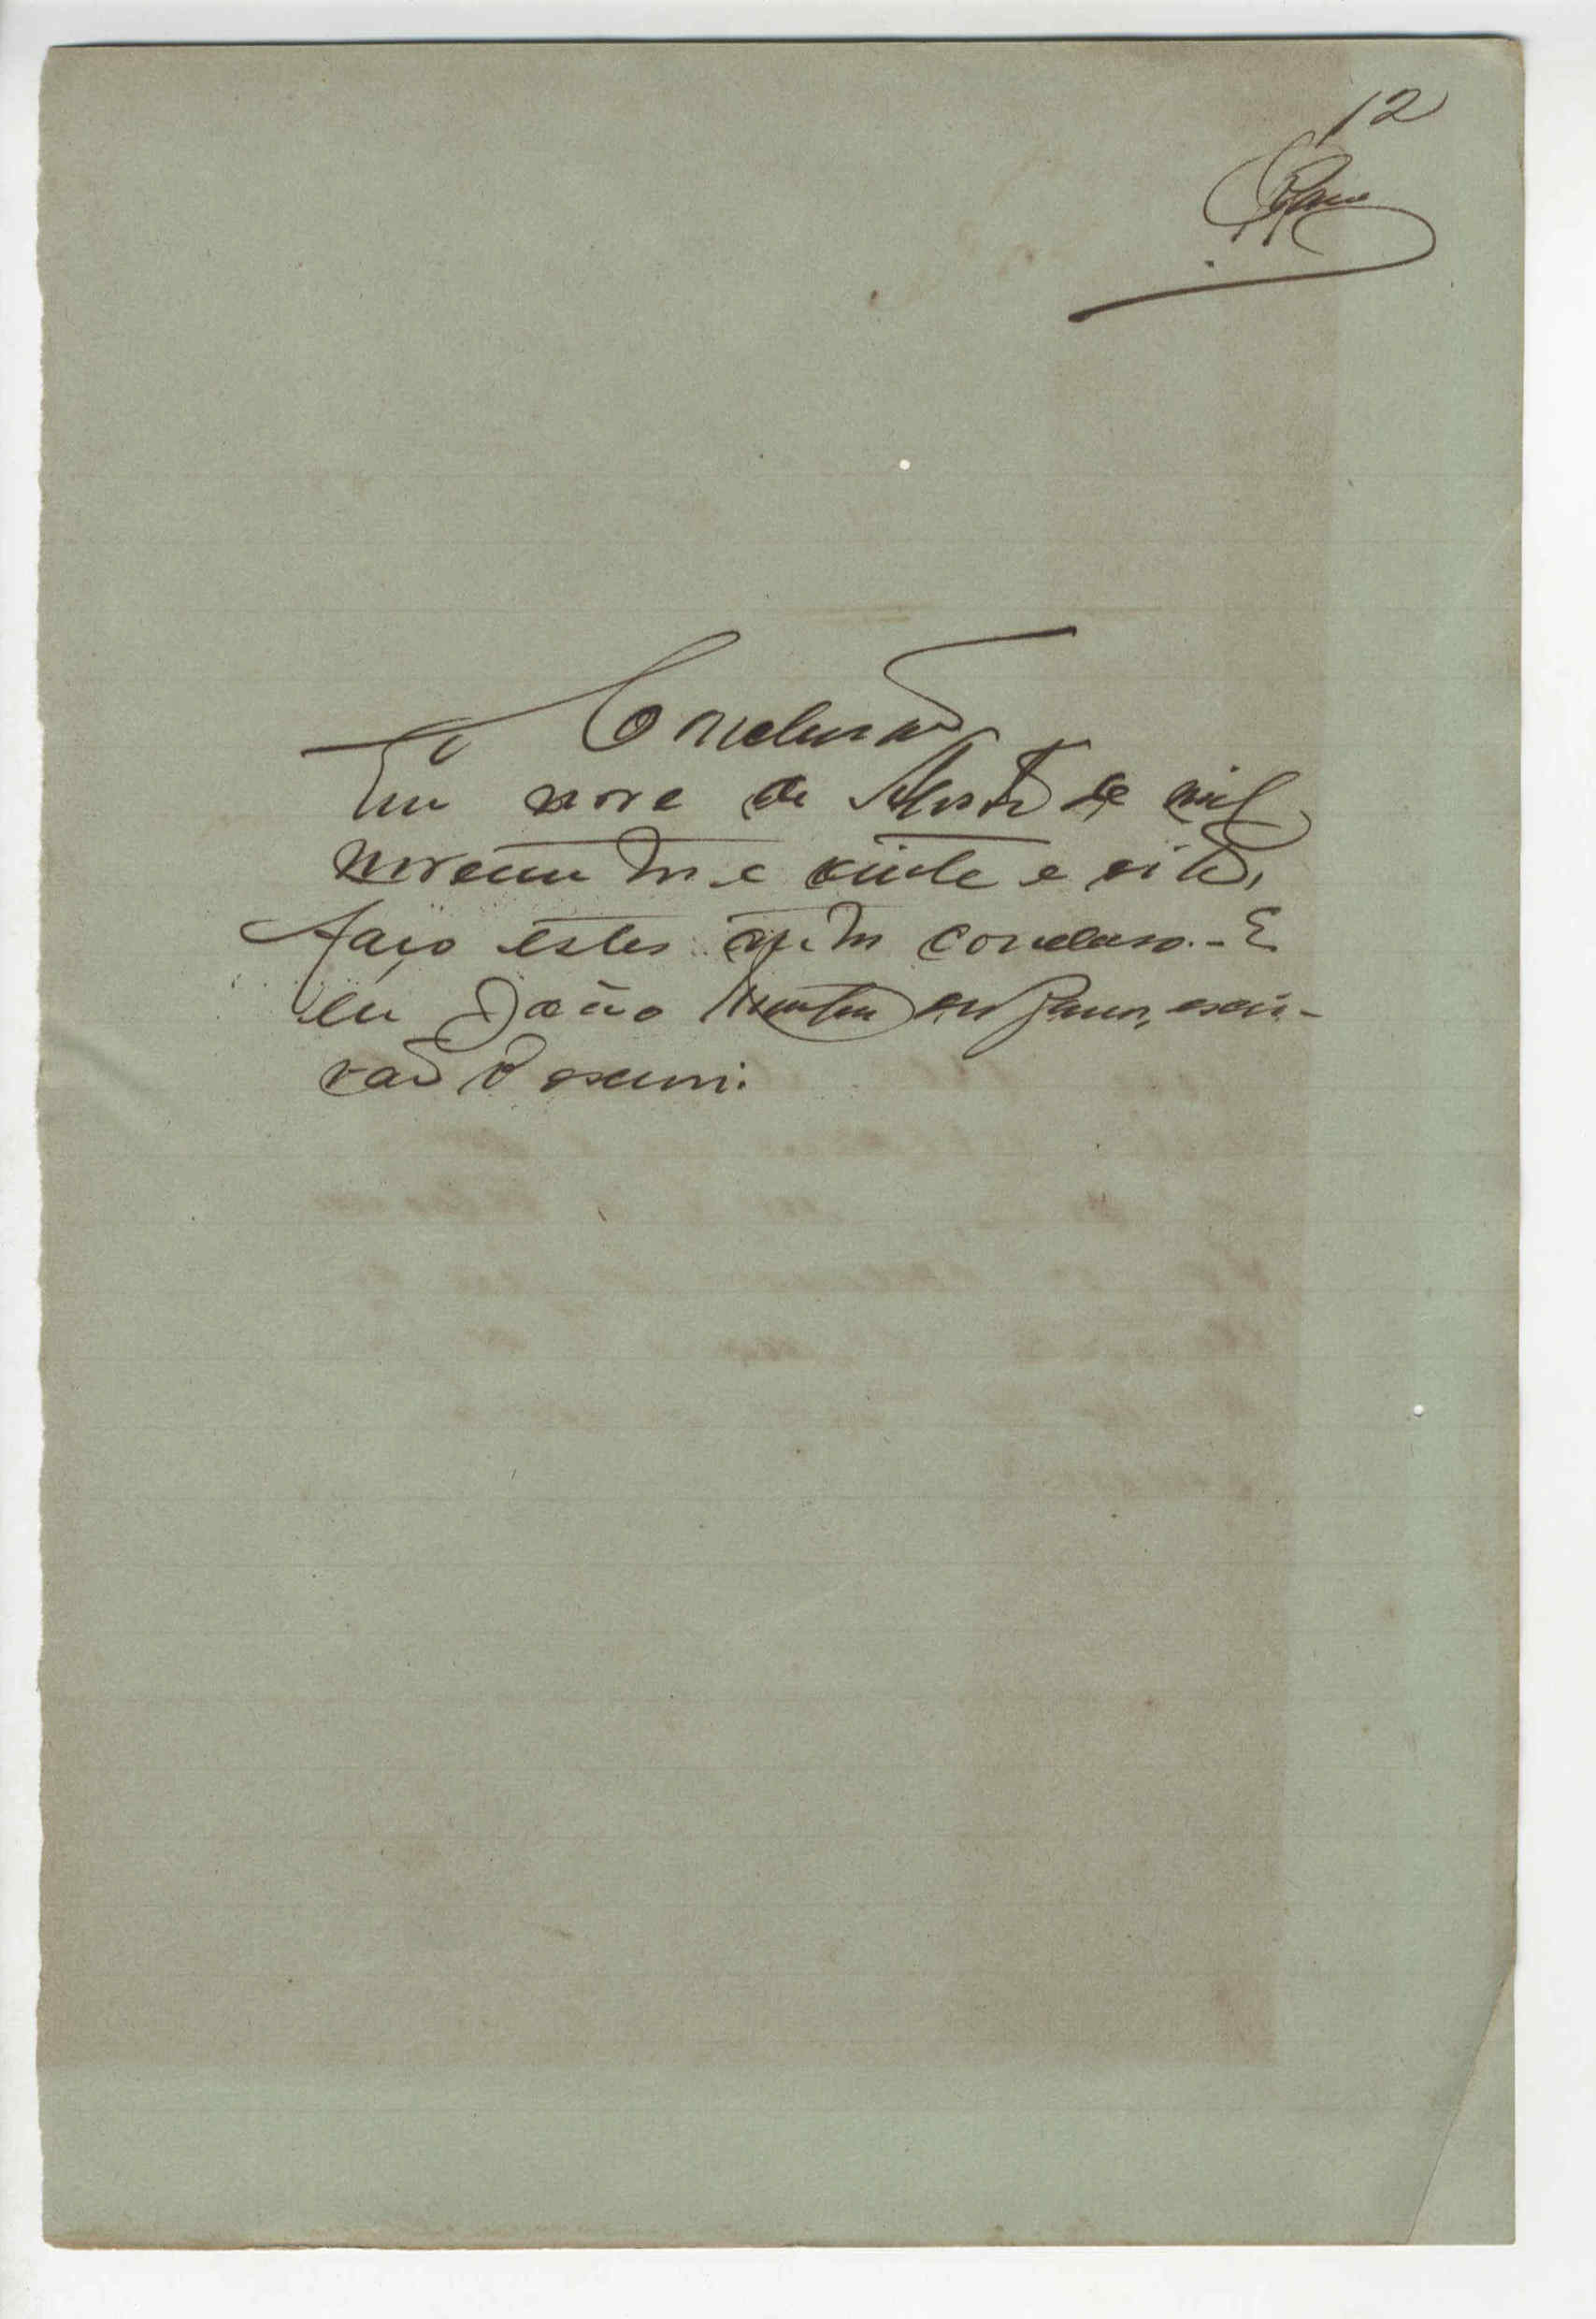 12
Conclusão
Em nove de Agosto de mil
novecentos e vinte e oito,
faço estes autos conclusos. - E
eu João escri-
vão o escrevi.